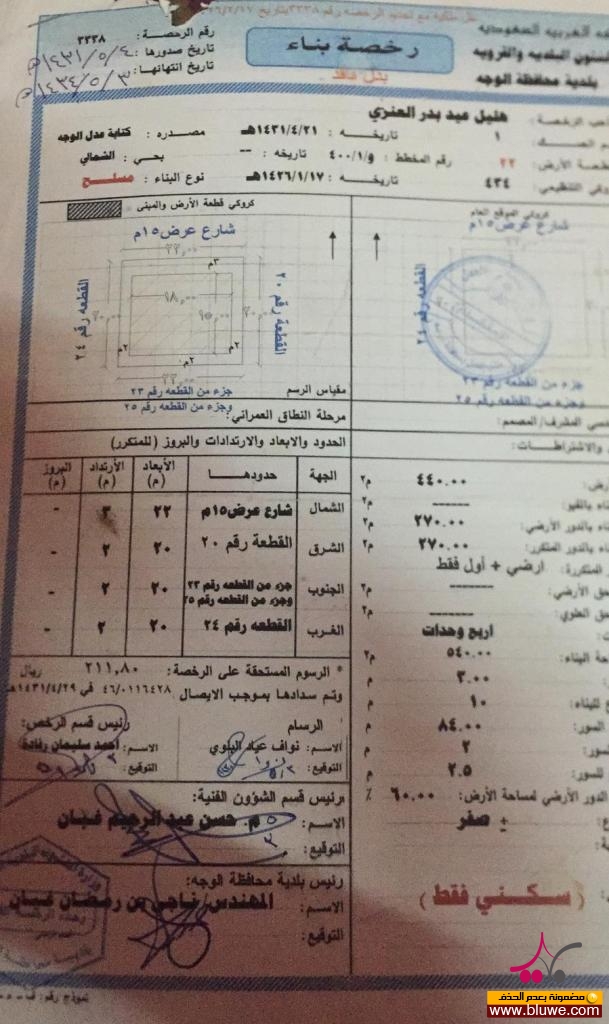 رخصة بناء
بدل فاقد
بلدية محافظة الوجه
رقم الرخصة: ٣٣٣٨
تاريخ صدورها: ١٤٣١/٥/٤هـ
تاريخ انتهائها: ١٤٣٤/٥/٣هـ
هليل عيد بدر العنزي
١ تاريخه : ١٤٣١/٤/٢١هـ مصدره : كتابة عدل الوجه
الأرض: ٢٢ رقم المخطط : و/٤٠٠/١ تاريخه : -- بحي : الشمالي
التنظيمي: ٤٣٤ تاريخه : ١٤٢٦/١/١٧هـ نوع البناء : مسلح
كروكي الموقع العام
كروكي قطعة الأرض والمبنى
شارع عرض١٥م
القطعه رقم ٢٤
جزء من القطعه رقم ٢٣
وجزء من القطعه رقم ٢٥
شارع عرض١٥م
٢٢,٠٠
٣م
القطعه رقم ٢٠
القطعه رقم ٢٤
١٨,٠٠
١٥,٠٠
٢٠,٠٠
٢م
٢م
٢م
٢٢,٠٠
مقياس الرسم
جزء من القطعه رقم ٢٣
وجزء من القطعه رقم ٢٥
مرحلة النطاق العمراني:
المشرف/المصمم:
والاشتراطات:
الحدود والابعاد والارتدادات والبروز (للمتكرر)
الجهة حدودها الأبعاد (م) الأرتداد (م) البروز (م)
الشمال شارع عرض١٥م ٢٢ ٣ -
الشرق القطعة رقم ٢٠ ٢٠ ٢ -
الجنوب جزء من القطعه رقم ٢٣ وجزء من القطعه رقم ٢٥ ٢٠ ٢ -
الغرب القطعه رقم ٢٤ ٢٠ ٢ -
٤٤٠.٠٠ م٢
بالقبو: ------ م٢
بالدور الأرضي: ٢٧٠.٠٠ م٢
بالدور المتكرر: ٢٧٠.٠٠ م٢
المتكررة: ارضي + أول فقط
الأرضي: ------ م٢
العلوي: ------ م٢
اربع وحدات
البناء: ٥٤٠.٠٠ م٢
٣.٠٠ م
للبناء: ١٠ م
السور: ٨٤.٠٠ م
السور: ٢ م
للسور: ٢.٥ م
الدور الأرضي لمساحة الأرض: ٦٠.٠٠ %
± صفر
( سكني فقط )
* الرسوم المستحقة على الرخصة: ٢١١,٨٠ ريال
وتم سدادها بموجب الايصال ٤٦/٠١١٦٤٢٨ في ١٤٣١/٤/٢٩هـ
الرسام
الاسم: نواف عياد البلوي
التوقيع:
رئيس قسم الرخص:
الاسم: أحمد سليمان رفادة
التوقيع:
رئيس قسم الشؤون الفنية:
الاسم: م. حسن عبد الرحيم غبان
التوقيع:
رئيس بلدية محافظة الوجه:
الاسم: المهندس/ناجي بن رمضان غبان
التوقيع:
نموذج رقم:
مضمونة بعدم الحذف
www.bluwe.com